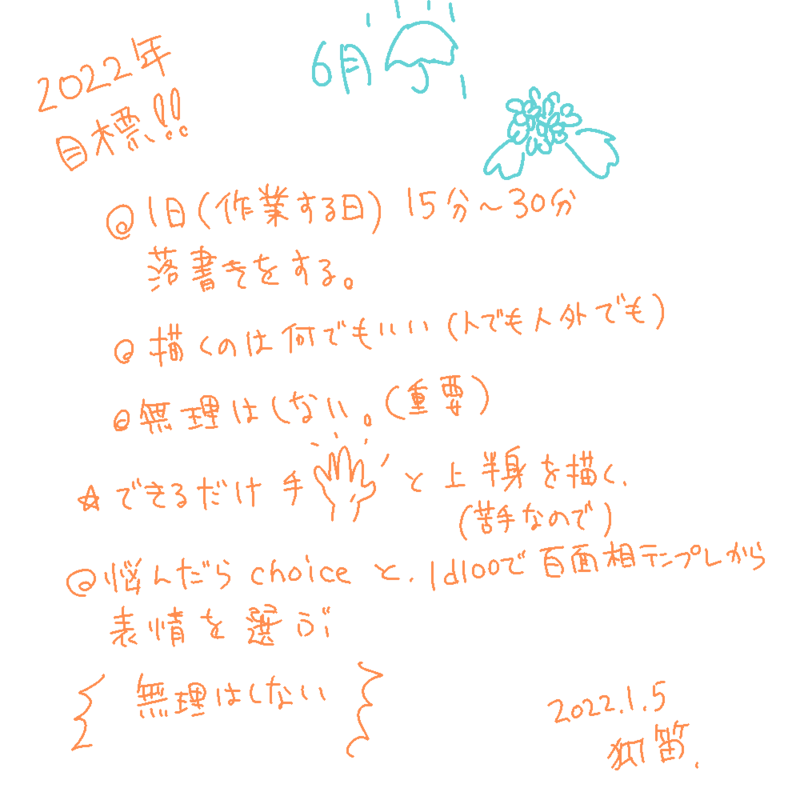 2022年
目標!!
6月
◎1日(作業する日) 15分〜30分
落書きをする。
◎描くのは何でもいい(人でも人外でも)
◎無理はしない。(重要)
☆できるだけ手と上半身を描く、
(苦手なので)
◎悩んだらchoiceと、1d100で百面相テンプレから
表情を選ぶ
無理はしない
2022.1.5
笛.